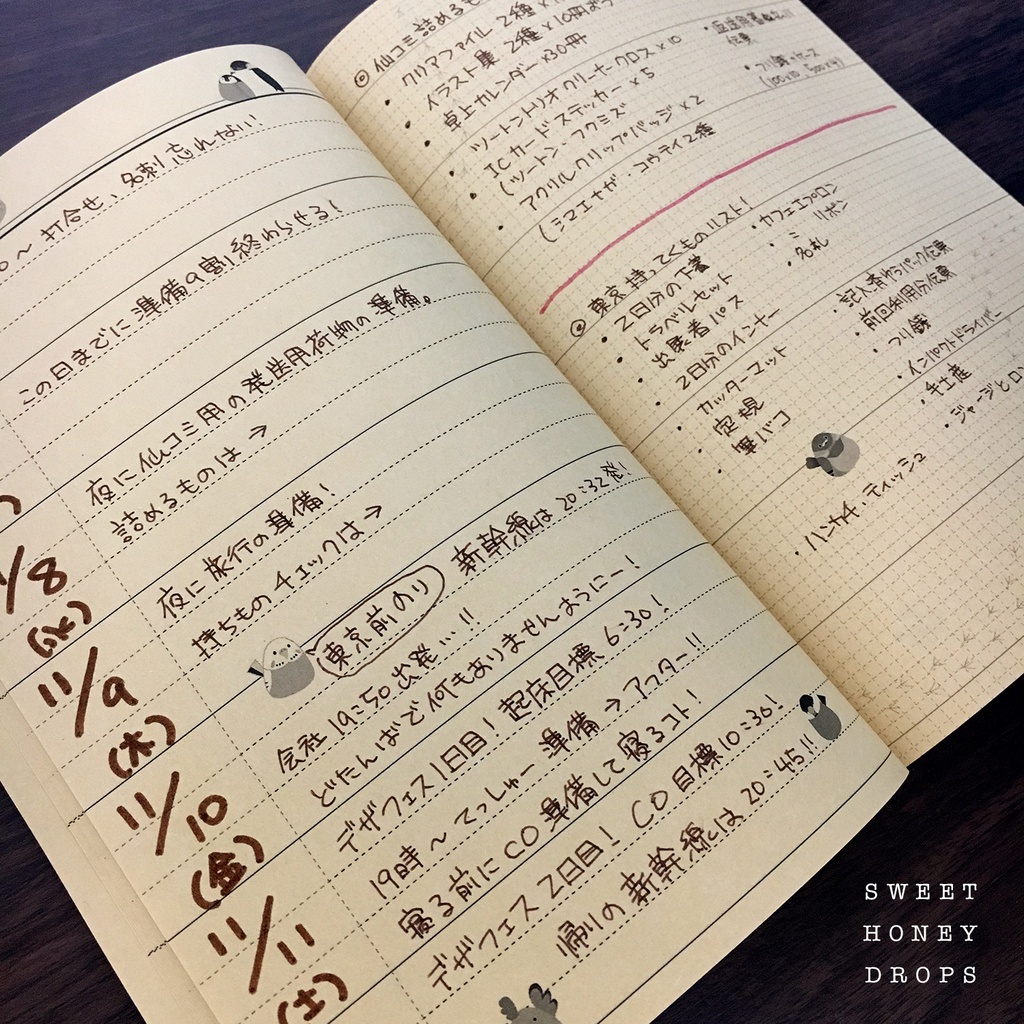 〜 打合せ、名刺忘れない!
この日までに準備9割終わらせる!
夜に仙コミ用の発送用荷物の準備。
詰めるものは →
/8
(水)
夜に旅行の準備!
持ちものチェックは →
11/9
(木)
東京前のり 新幹線は20:32発!!
会社19:50出発…!!
どたんばで何もありませんようにー!
11/10
(金)
デザフェス1日目! 起床目標 6:30!
19時〜てっしゅー 準備→アフター!!
寝る前にCO準備して寝るコト!
11/11
(土)
デザフェス2日目! CO目標10:30!
帰りの新幹線は20:45!!
◎仙コミ詰めるもの
・クリアファイル 2種×
・イラスト集 2種×10冊
・卓上カレンダー×30冊
・ツートントリオクリーナークロス×10
・ICカードステッカー×5
(ツートン・フクミズ
・アクリルクリップバッジ×2
(シマエナガ・コウテイ2種
・返送用着払い
伝票
・つり銭+ケース
◎東京持ってくものリスト!
・2日分の下着
・トラベルセット
・出展者パス
・2日分のインナー
・カッターマット
・定規
・筆バコ
・カフェエプロン
・〃 リボン
・名札
・記入済ゆうパック伝票
・前回利用分伝票
・つり銭
・インパクトドライバー
・手土産
・ジャージとロン
・ハンカチ・ティッシュ
SWEET
HONEY
DROPS